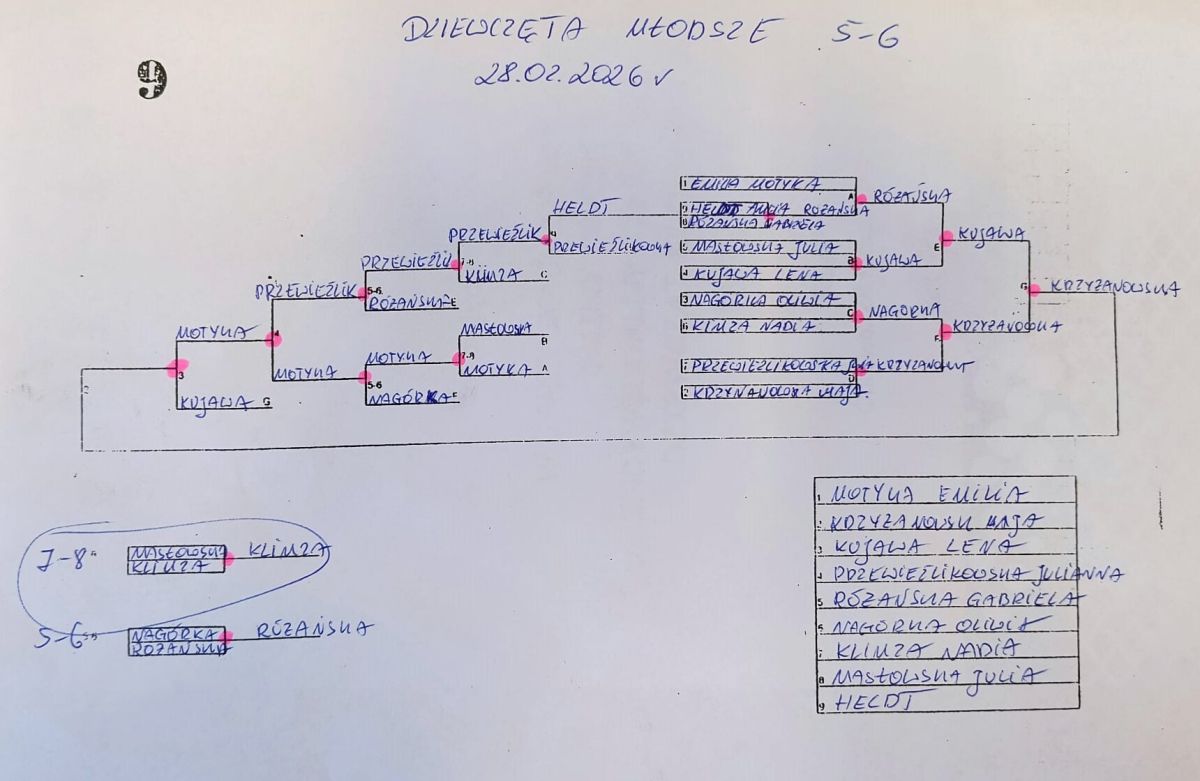 DZIEWCZĘTA MŁODSZE 5-6
28.02.2026 r
9
1 EMILIA MOTYKA
A
RÓŻAŃSKA
HELDT
9 HELDT RÓŻAŃSKA
8 RÓŻAŃSKA GABRIELA
PRZEWIEŹLIK
PRZEWIEŹLIKOWNA
KUJAWA
E
5 MASŁOWSKA JULIA
B
KUJAWA
4 KUJAWA LENA
PRZEWIEŹLIK
7-8
KLIMZA C
PRZEWIEŹLIK
5-6
RÓŻAŃSKA E
3 NAGÓRKA OLIWIA
C
NAGÓRKA
6 KIMZA NADIA
G
KRZYŻANOWSKA
KRZYŻANOWSKA
F
MASŁOWSKA
B
MOTYKA
4
MOTYKA
7-8
MOTYKA A
7 PRZEWIEŹLIKOWSKA
D
KRZYŻANOWS
2 KRZYNANOWSKA MAJA
MOTYKA
5-6
NAGÓRKA F
2
3
KUJAWA G
1 MOTYKA EMILIA
2 KRZYŻANOWSK MAJA
3 KUJAWA LENA
4 PRZEWIEŹLIKOWSKA JULIANNA
5 RÓŻAŃSKA GABRIELA
5 NAGÓRKA OLIWIA
7 KLIMZA NADIA
8 MASŁOWSKA JULIA
9 HELDT
7-8
MASŁOWSKA
KLIMZA
KLIMZA
5-6
NAGÓRKA
RÓŻAŃSKA
RÓŻAŃSKA